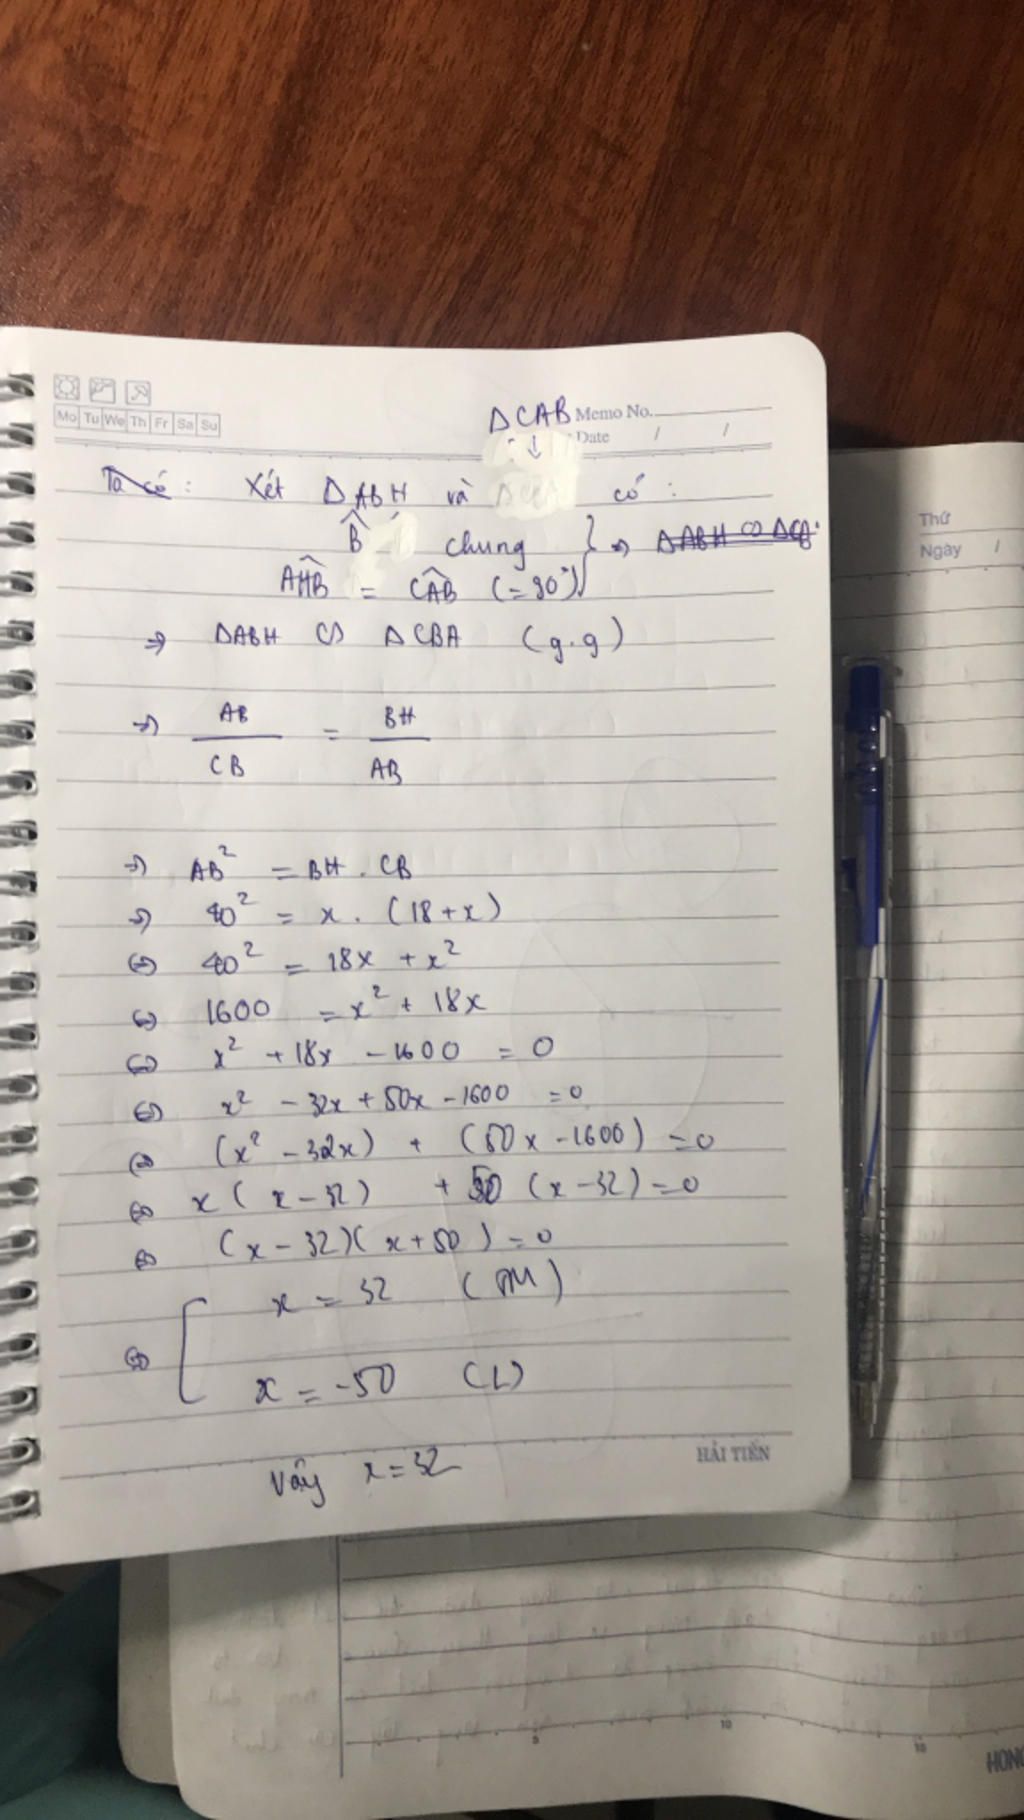 Mo Tu We Th Fr Sa Su
ΔCAB Memo No.
↓ Date / /
Ta có : Xét ΔABH và có :
B̂ chung } ⇒ ΔABH ∽ ΔCB
AĤB = CÂB (= 90°)
⇒ ΔABH ∽ ΔCBA (g.g)
⇒ AB/CB = BH/AB
⇒ AB² = BH . CB
⇒ 40² = x . (18+x)
⇔ 40² = 18x + x²
⇔ 1600 = x² + 18x
⇔ x² + 18x - 1600 = 0
⇔ x² - 32x + 50x - 1600 = 0
⇔ (x² - 32x) + (50x - 1600) = 0
⇔ x (x - 32) + 50 (x - 32) = 0
⇔ (x - 32)(x + 50) = 0
⇔ [ x = 32 (TM)
x = -50 (L)
Vậy x = 32
HẢI TIẾN
Thứ
Ngày /
5 10 15
HONG